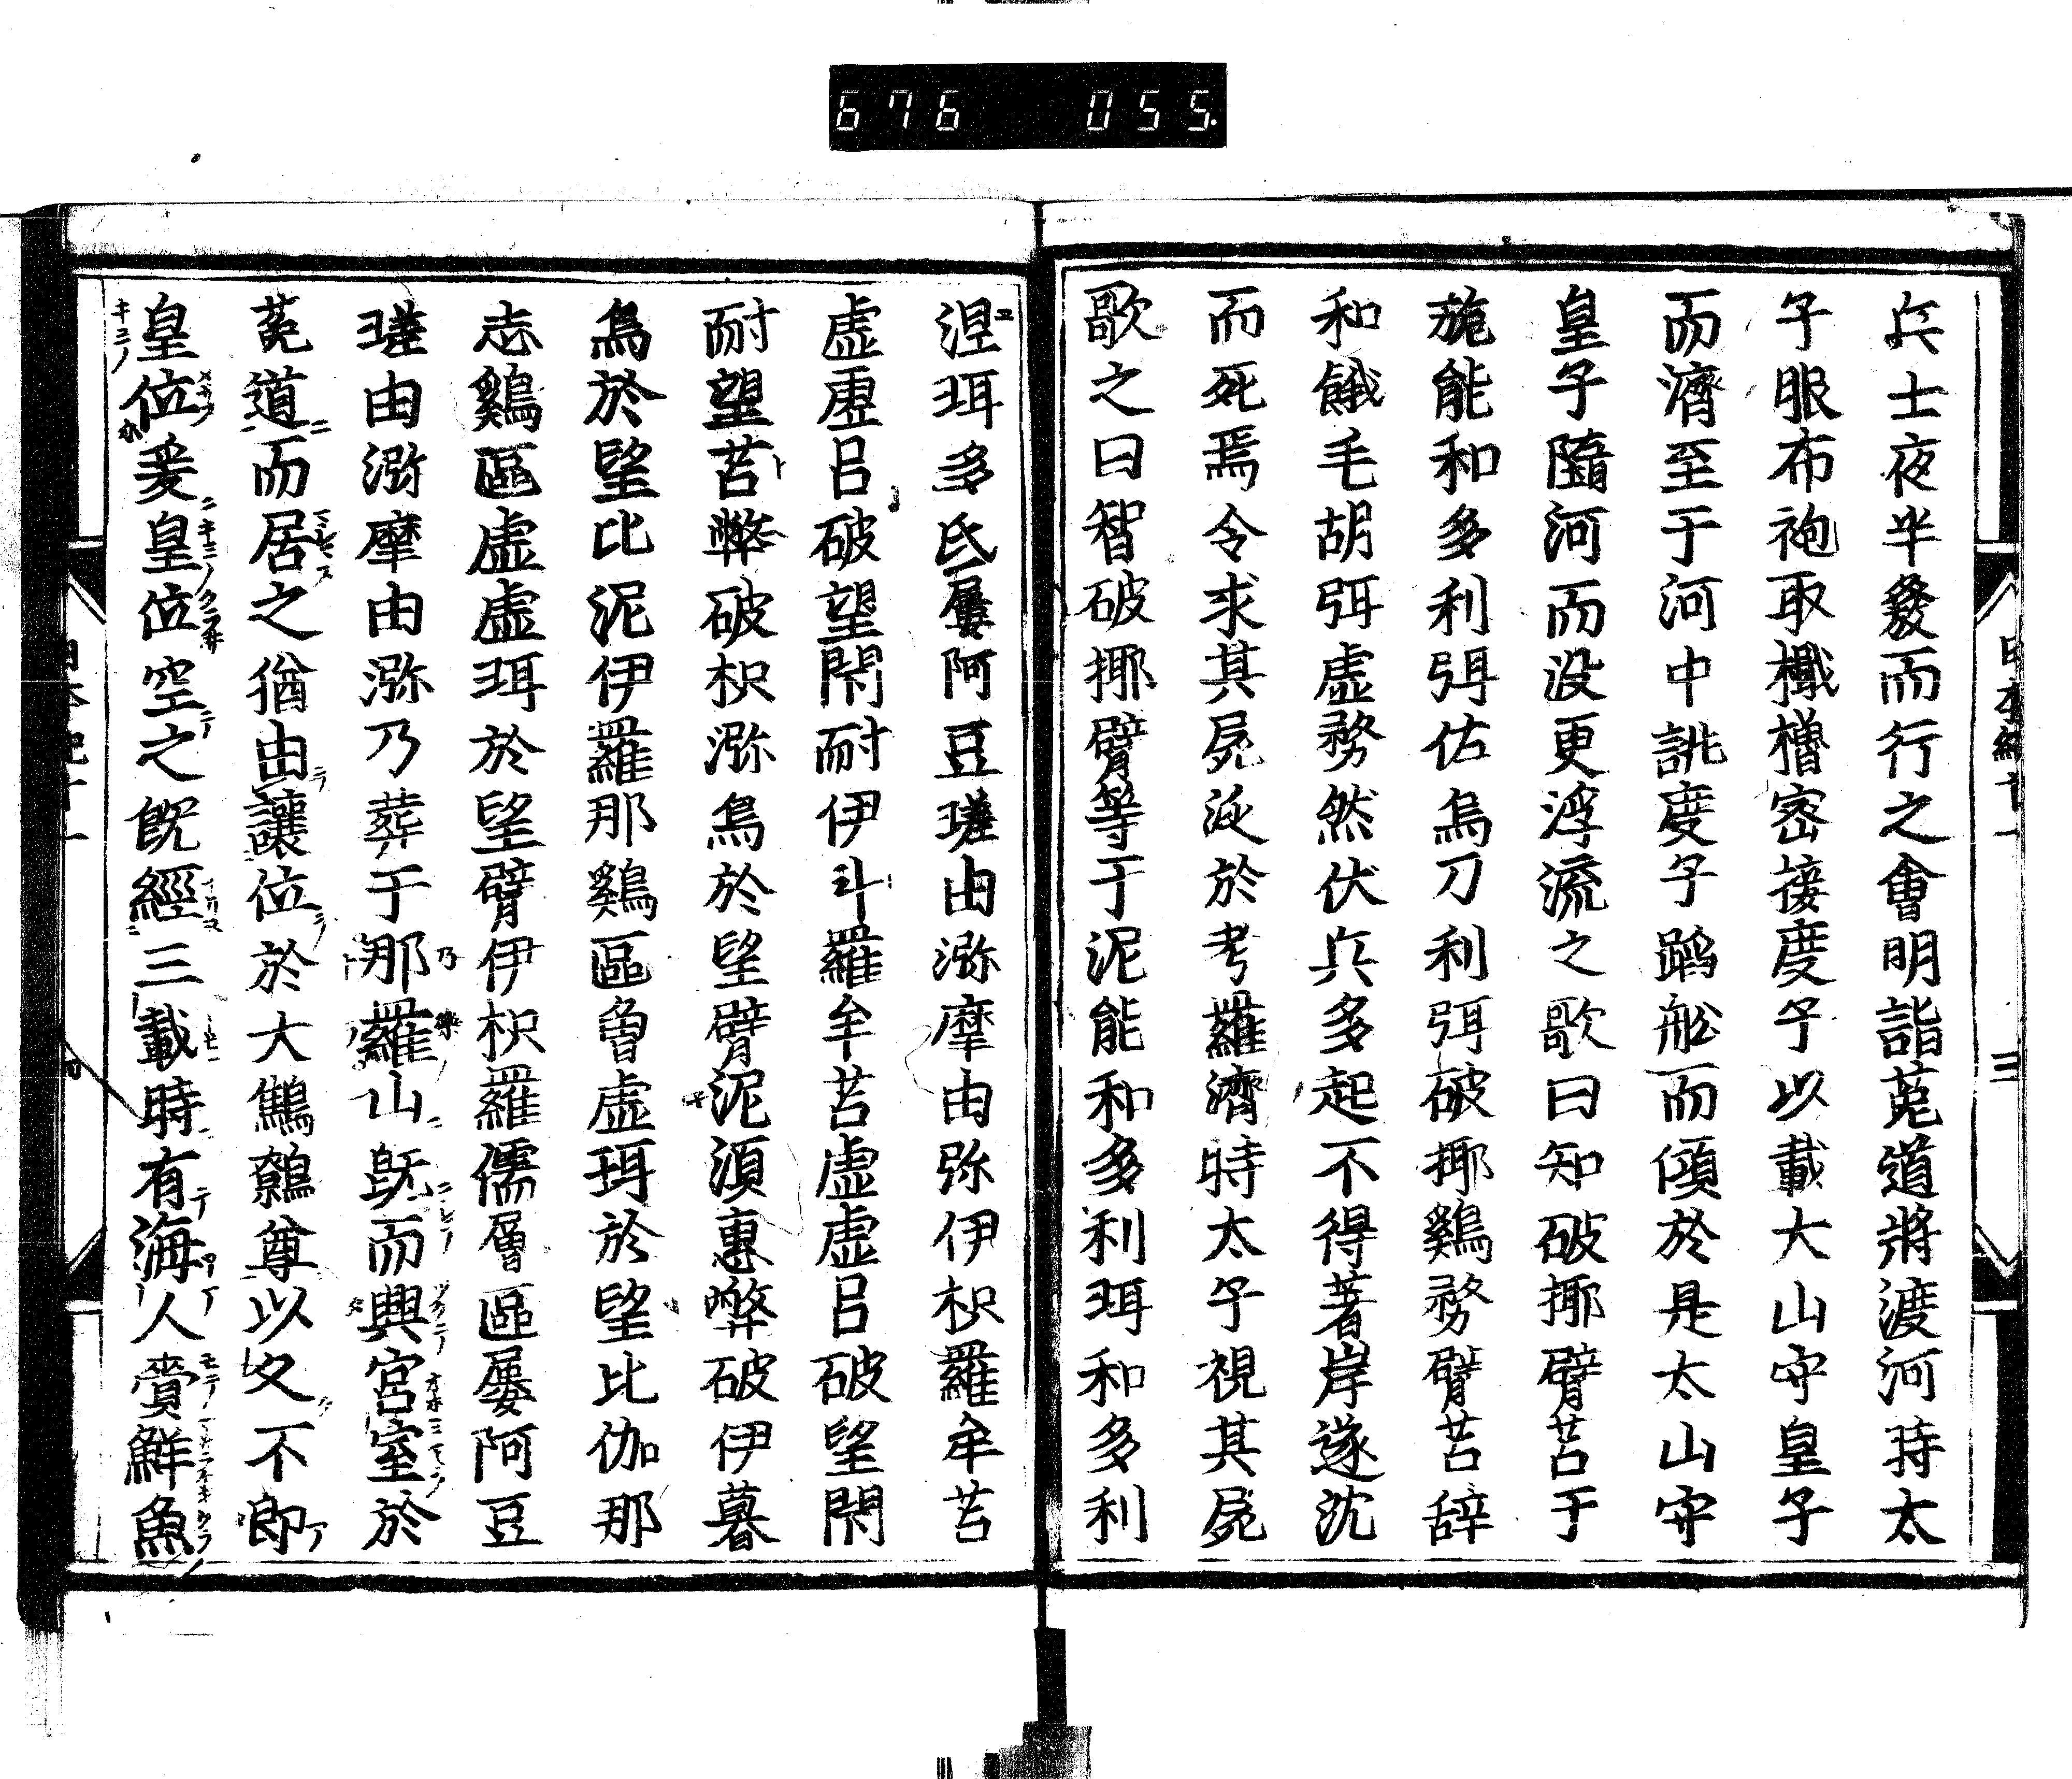 676 055
兵士夜半發而行之會明詣菟道將渡河時太
子服布袍取檝櫓密接度子以載大山守皇子
而濟至于河中誂度子蹈舩而傾於是太山守
皇子隨河而没更浮流之歌曰知破揶臂苦于
旎能和多利珥佐烏刀利珥破揶鷄務臂苦辞
和餓毛胡弭虚務然伏兵多起不得著岸遂沈
而死焉令求其屍泛於考羅濟時太子視其屍
歌之曰智破揶臂等于泥能和多利珥和多利
涅珥多氐屢阿豆瑳由瀰摩由弥伊枳羅牟苦
虚虚呂破望閇耐伊斗羅牟苦虚虚呂破望閇
耐望苦弊破枳瀰烏於望臂泥湏惠弊破伊暮
烏於望比泥伊羅那鷄區魯虚珥於望比伽那
志鷄區虚虚珥於望臂伊枳羅儒層區屢阿豆
瑳由瀰摩由瀰乃葬于那羅山既而興宮室於
菟道而居之猶由讓位於大鷦鷯尊以久不即
皇位爰皇位空之既經三載時有海人賷鮮魚